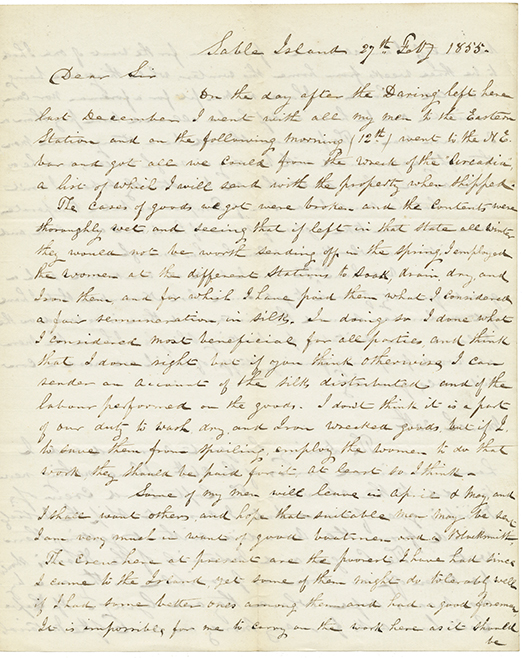 Sable Island 27th Feby 1855
Dear Sir
On the day after the Daring left here
last December I went with all my men to the Eastern
Station and on the following morning (12th) went to the N.E.
bar and got all we could from the wreck of the Arcadia
a list of which I will send with the property when shipped.
The cases of goods we got were broken and the contents were
thoroughly wet and seeing that if left in that state all winter
they would not be worth sending off in the spring I employed
the women at the different Stations to soak, drain, dry, and
Iron them and for which I have paid them what I considered
a fair remuneration in silks. In doing so I done what
I considered most beneficial for all parties and think
that I done right but if you think otherwise I can
render an account of the silks distributed and of the
labour performed on the goods. I dont think it is a part
of our duty to wash dry and Iron wrecked goods but if I
to save them from spoiling employ the women to do that
work they should be paid for it at least so I think.
Some of my men will leave in April & May and
I shall want others, and hope that suitable men may be
I am very much in want of good boatmen and a Blacksmith
The crew here at present are the poorest I have had since
I came to the Island yet some of them might do tolerably well
if I had some better ones among them and had a good foreman
It is impossible for me to carry on the work here as it should
be